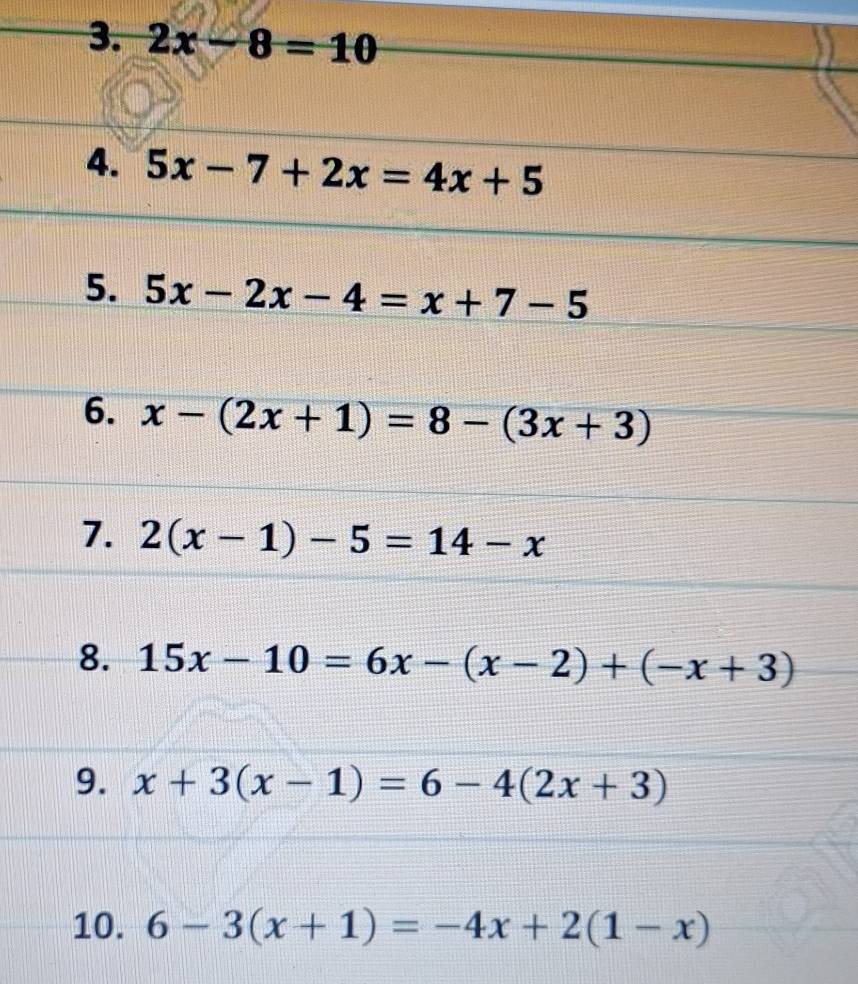 3. 2x − 8 = 10
4. 5x − 7 + 2x = 4x + 5
5. 5x − 2x − 4 = x + 7 − 5
6. x − (2x + 1) = 8 − (3x + 3)
7. 2(x − 1) − 5 = 14 − x
8. 15x − 10 = 6x − (x − 2) + (−x + 3)
9. x + 3(x − 1) = 6 − 4(2x + 3)
10. 6 − 3(x + 1) = −4x + 2(1 − x)